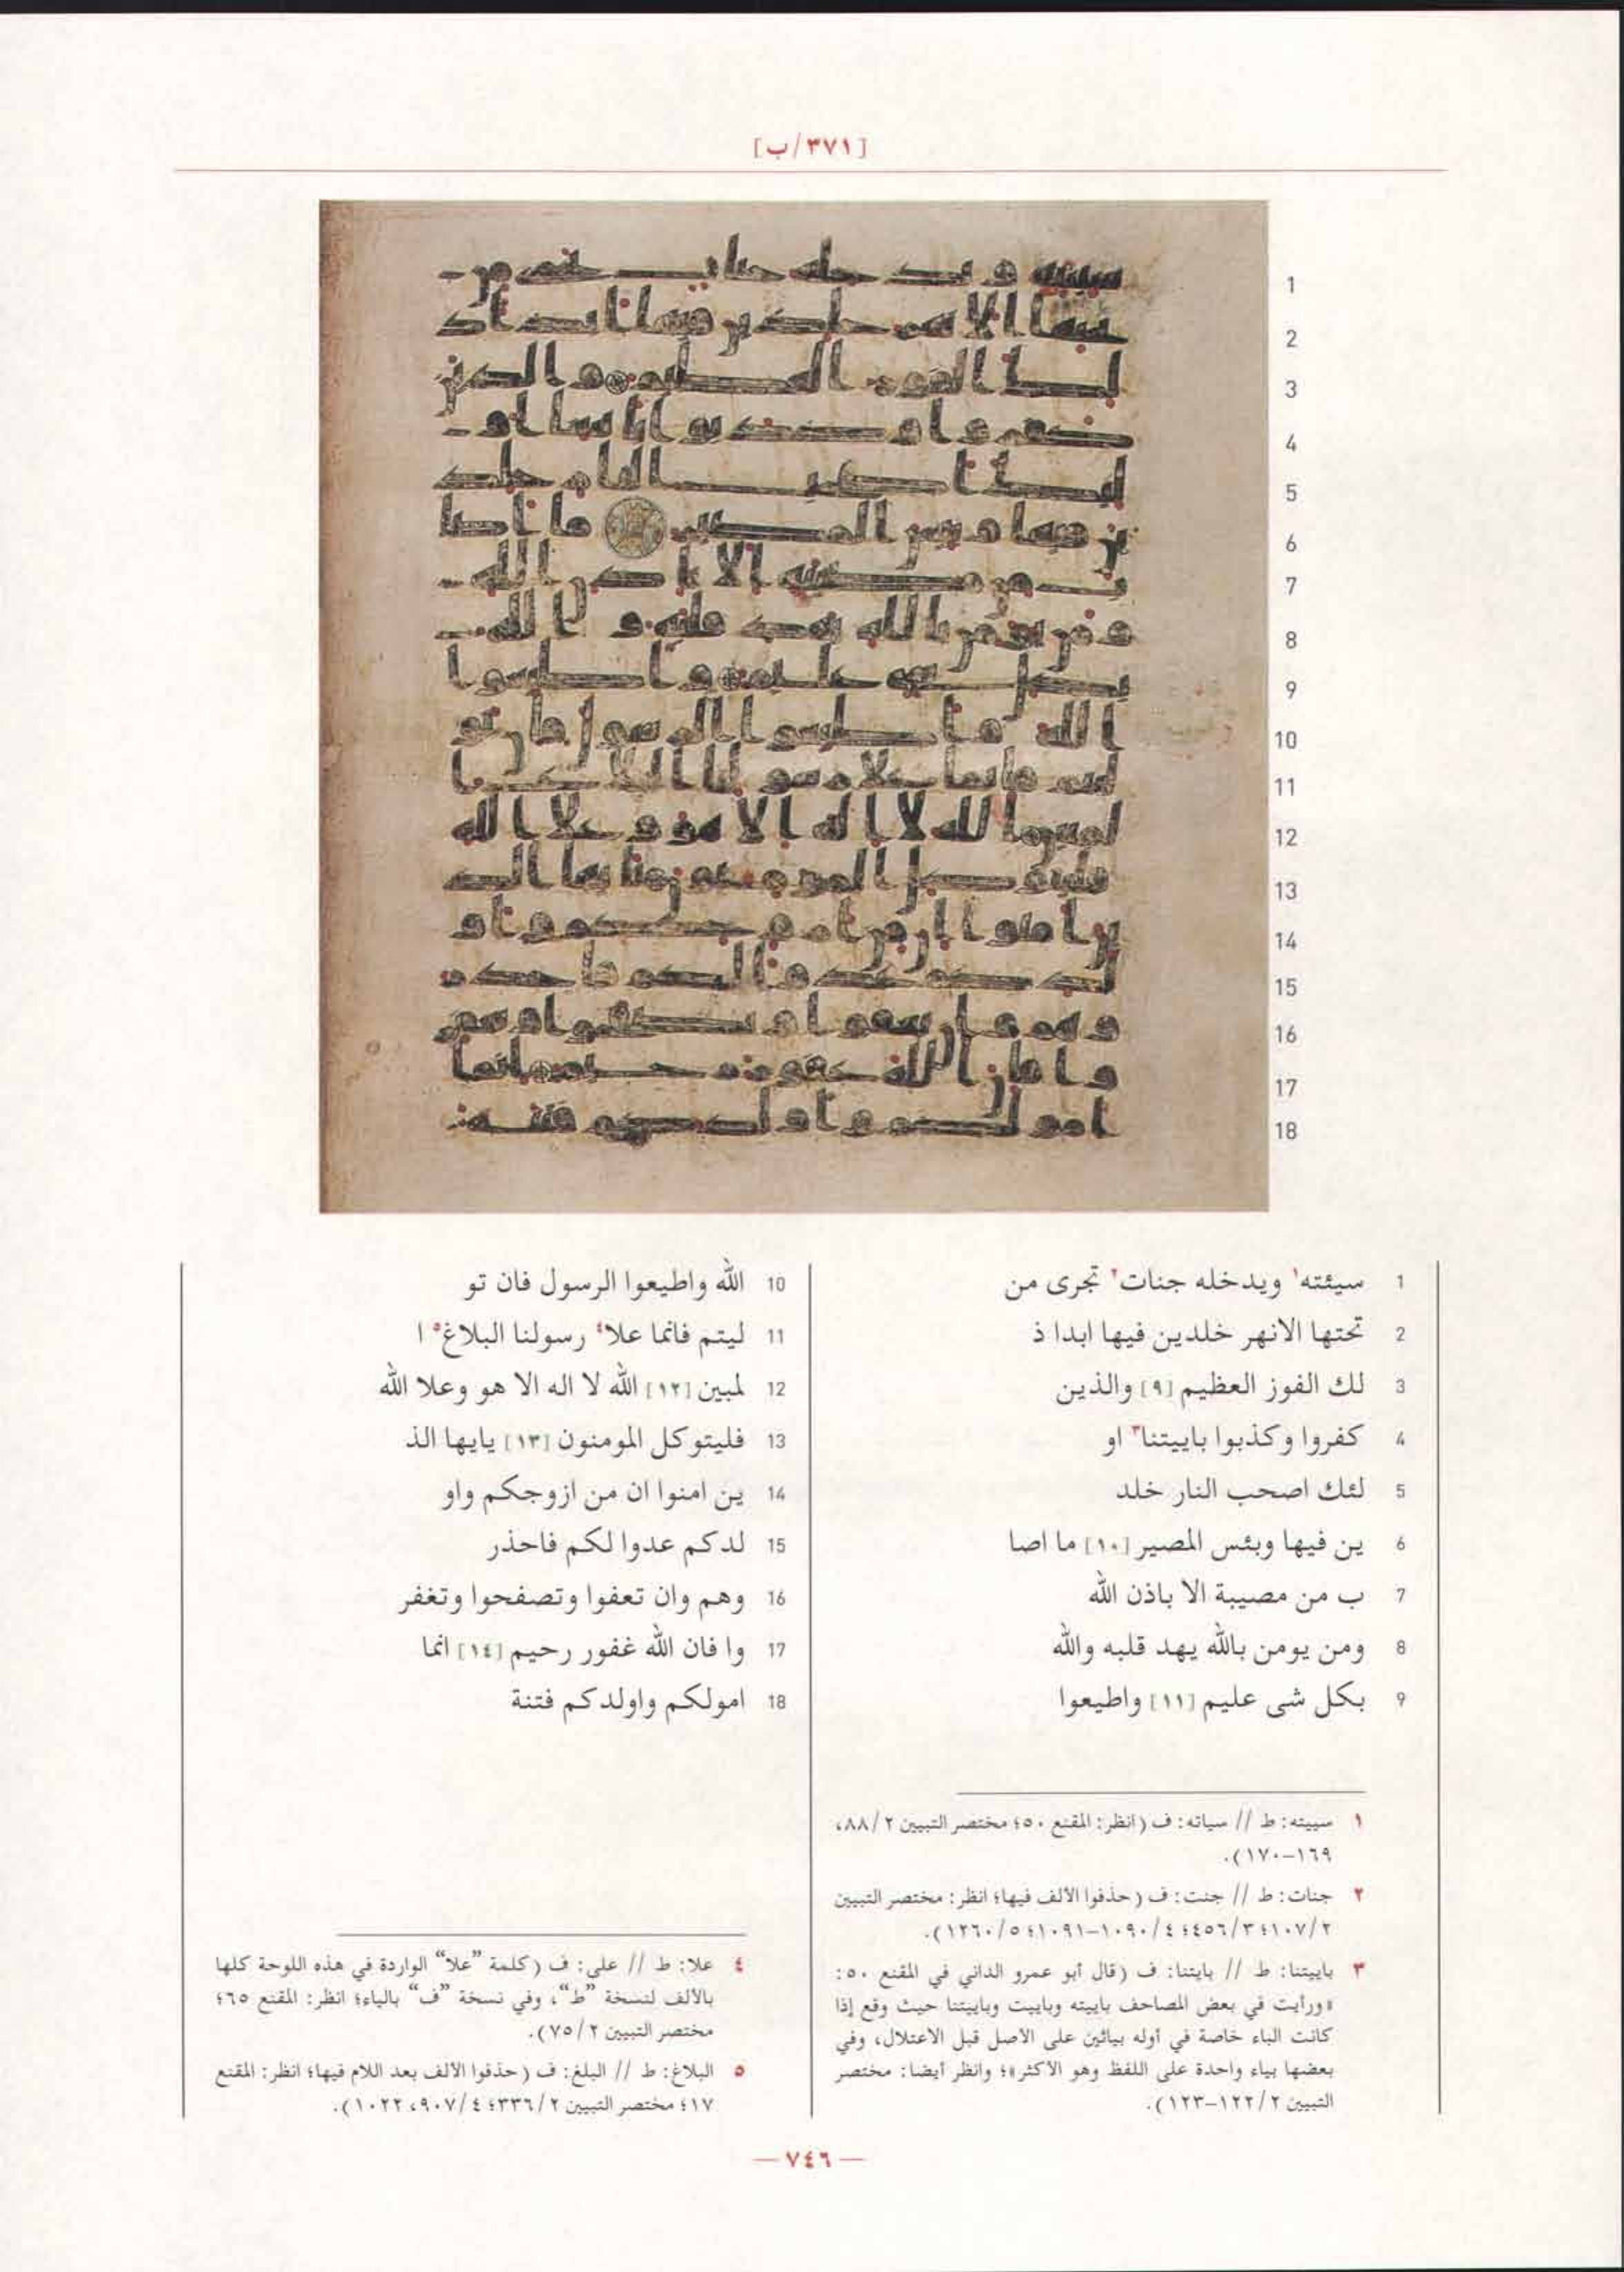 [٣٧١/ب]
1 سيئته١ ويدخله جنات٢ تجرى من
2 تحتها الانهر خلدين فيها ابدا ذ
3 لك الفوز العظيم [٩] والذين
4 كفروا وكذبوا باييتنا٣ او
5 لئك اصحب النار خلد
6 ين فيها وبئس المصير [١٠] ما اصا
7 ب من مصيبة الا باذن الله
8 ومن يومن بالله يهد قلبه والله
9 بكل شى عليم [١١] واطيعوا
10 الله واطيعوا الرسول فان تو
11 ليتم فانما علا٤ رسولنا البلاغ٥ ا
12 لمبين [١٢] الله لا اله الا هو وعلا الله
13 فليتوكل المومنون [١٣] يايها الذ
14 ين امنوا ان من ازوجكم واو
15 لدكم عدوا لكم فاحذر
16 وهم وان تعفوا وتصفحوا وتغفر
17 وا فان الله غفور رحيم [١٤] انما
18 امولكم واولدكم فتنة
١ سييته: ط // سياته: ف (انظر: المقنع ٥٠؛ مختصر التبيين ٨٨/٢،
١٦٩–١٧٠).
٢ جنات: ط // جنت: ف (حذفوا الألف فيها؛ انظر: مختصر التبيين
١٠٧/٢؛ ٤٥٦/٣؛ ١٠٩٠/٤–١٠٩١؛ ١٢٦٠/٥).
٣ باييتنا: ط // بايتنا: ف (قال أبو عمرو الداني في المقنع ٥٠:
«ورأيت في بعض المصاحف باييته وباييت وباييتنا حيث وقع إذا
كانت الباء خاصة في أوله بيائين على الاصل قبل الاعتلال، وفي
بعضها بياء واحدة على اللفظ وهو الأكثر»؛ وانظر أيضا: مختصر
التبيين ١٢٢/٢–١٢٣).
٤ علا: ط // على: ف (كلمة ”علا“ الواردة في هذه اللوحة كلها
بالألف لنسخة ”ط“، وفي نسخة ”ف“ بالياء؛ انظر: المقنع ٦٥؛
مختصر التبيين ٧٥/٢).
٥ البلاغ: ط // البلغ: ف (حذفوا الألف بعد اللام فيها؛ انظر: المقنع
١٧؛ مختصر التبيين ٣٣٦/٢؛ ٩٠٧/٤، ١٠٢٢).
— ٧٤٦ —